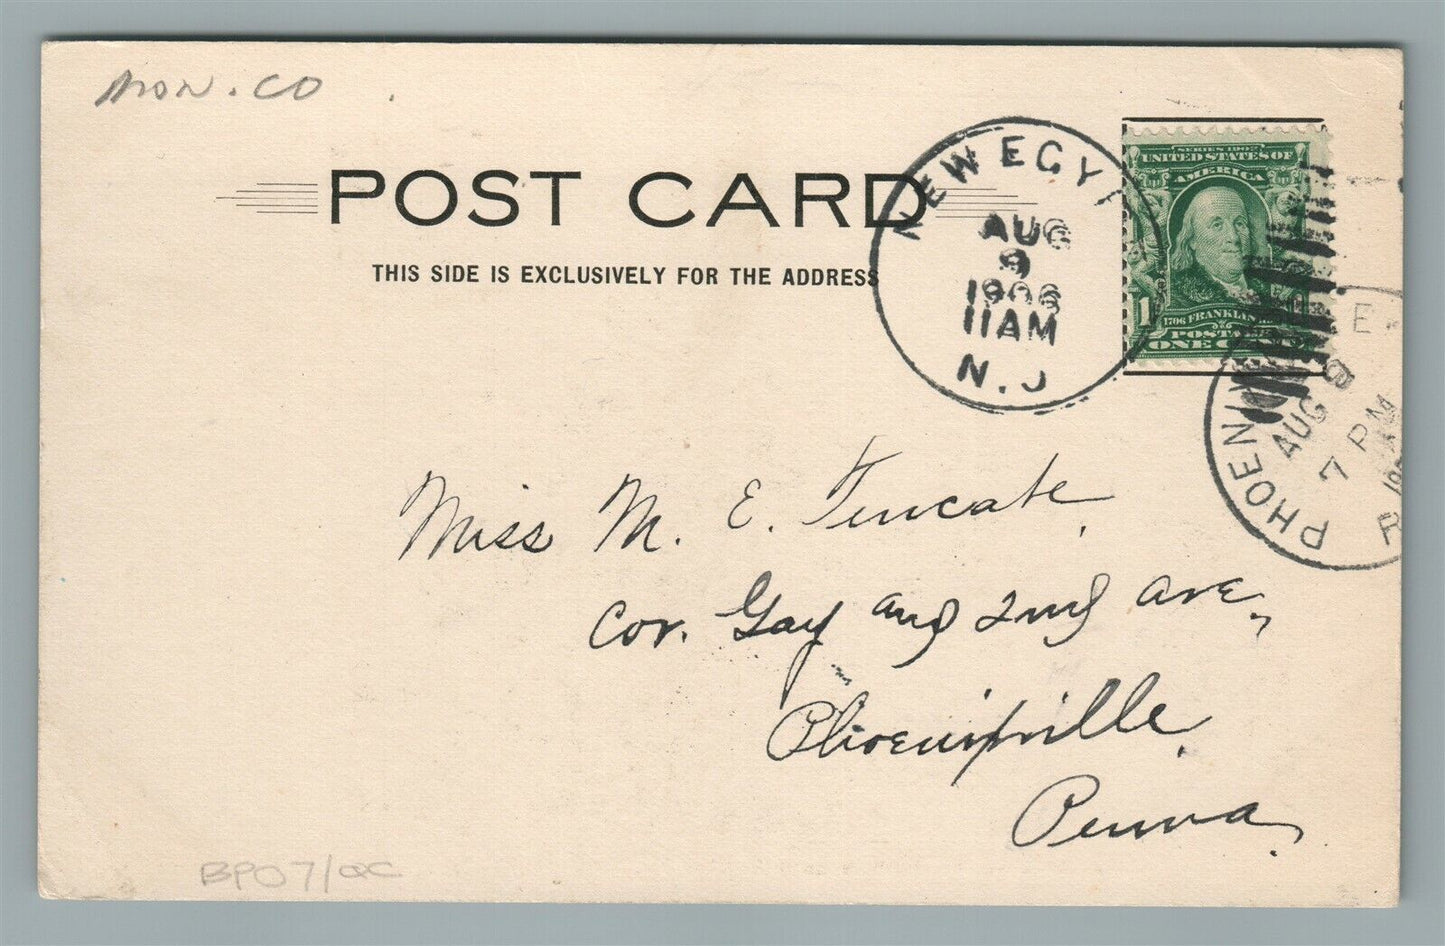 MON. CO
POST CARD
THIS SIDE IS EXCLUSIVELY FOR THE ADDRESS
NEW EGYP
AUG
9
1906
11AM
N.J
SERIES 1902
UNITED STATES OF
AMERICA
1706 FRANKLIN
POSTA
ONE C
PHOENIX E
AUG 9
7 PM
190
R
Miss M. E. Tencate.
Cor. Gay and 2nd Ave,
Phoenixville,
Penna.
BP07/QC